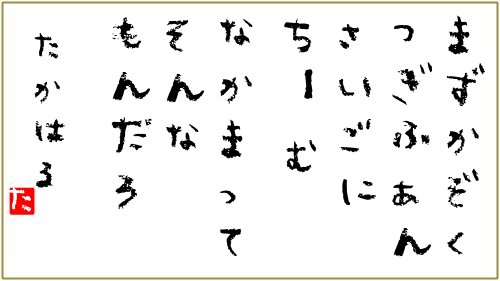 まずかぞく
つぎふぁん
さいごに
ちーむ
なかまって
そんな
もんだろ
たかはる
た